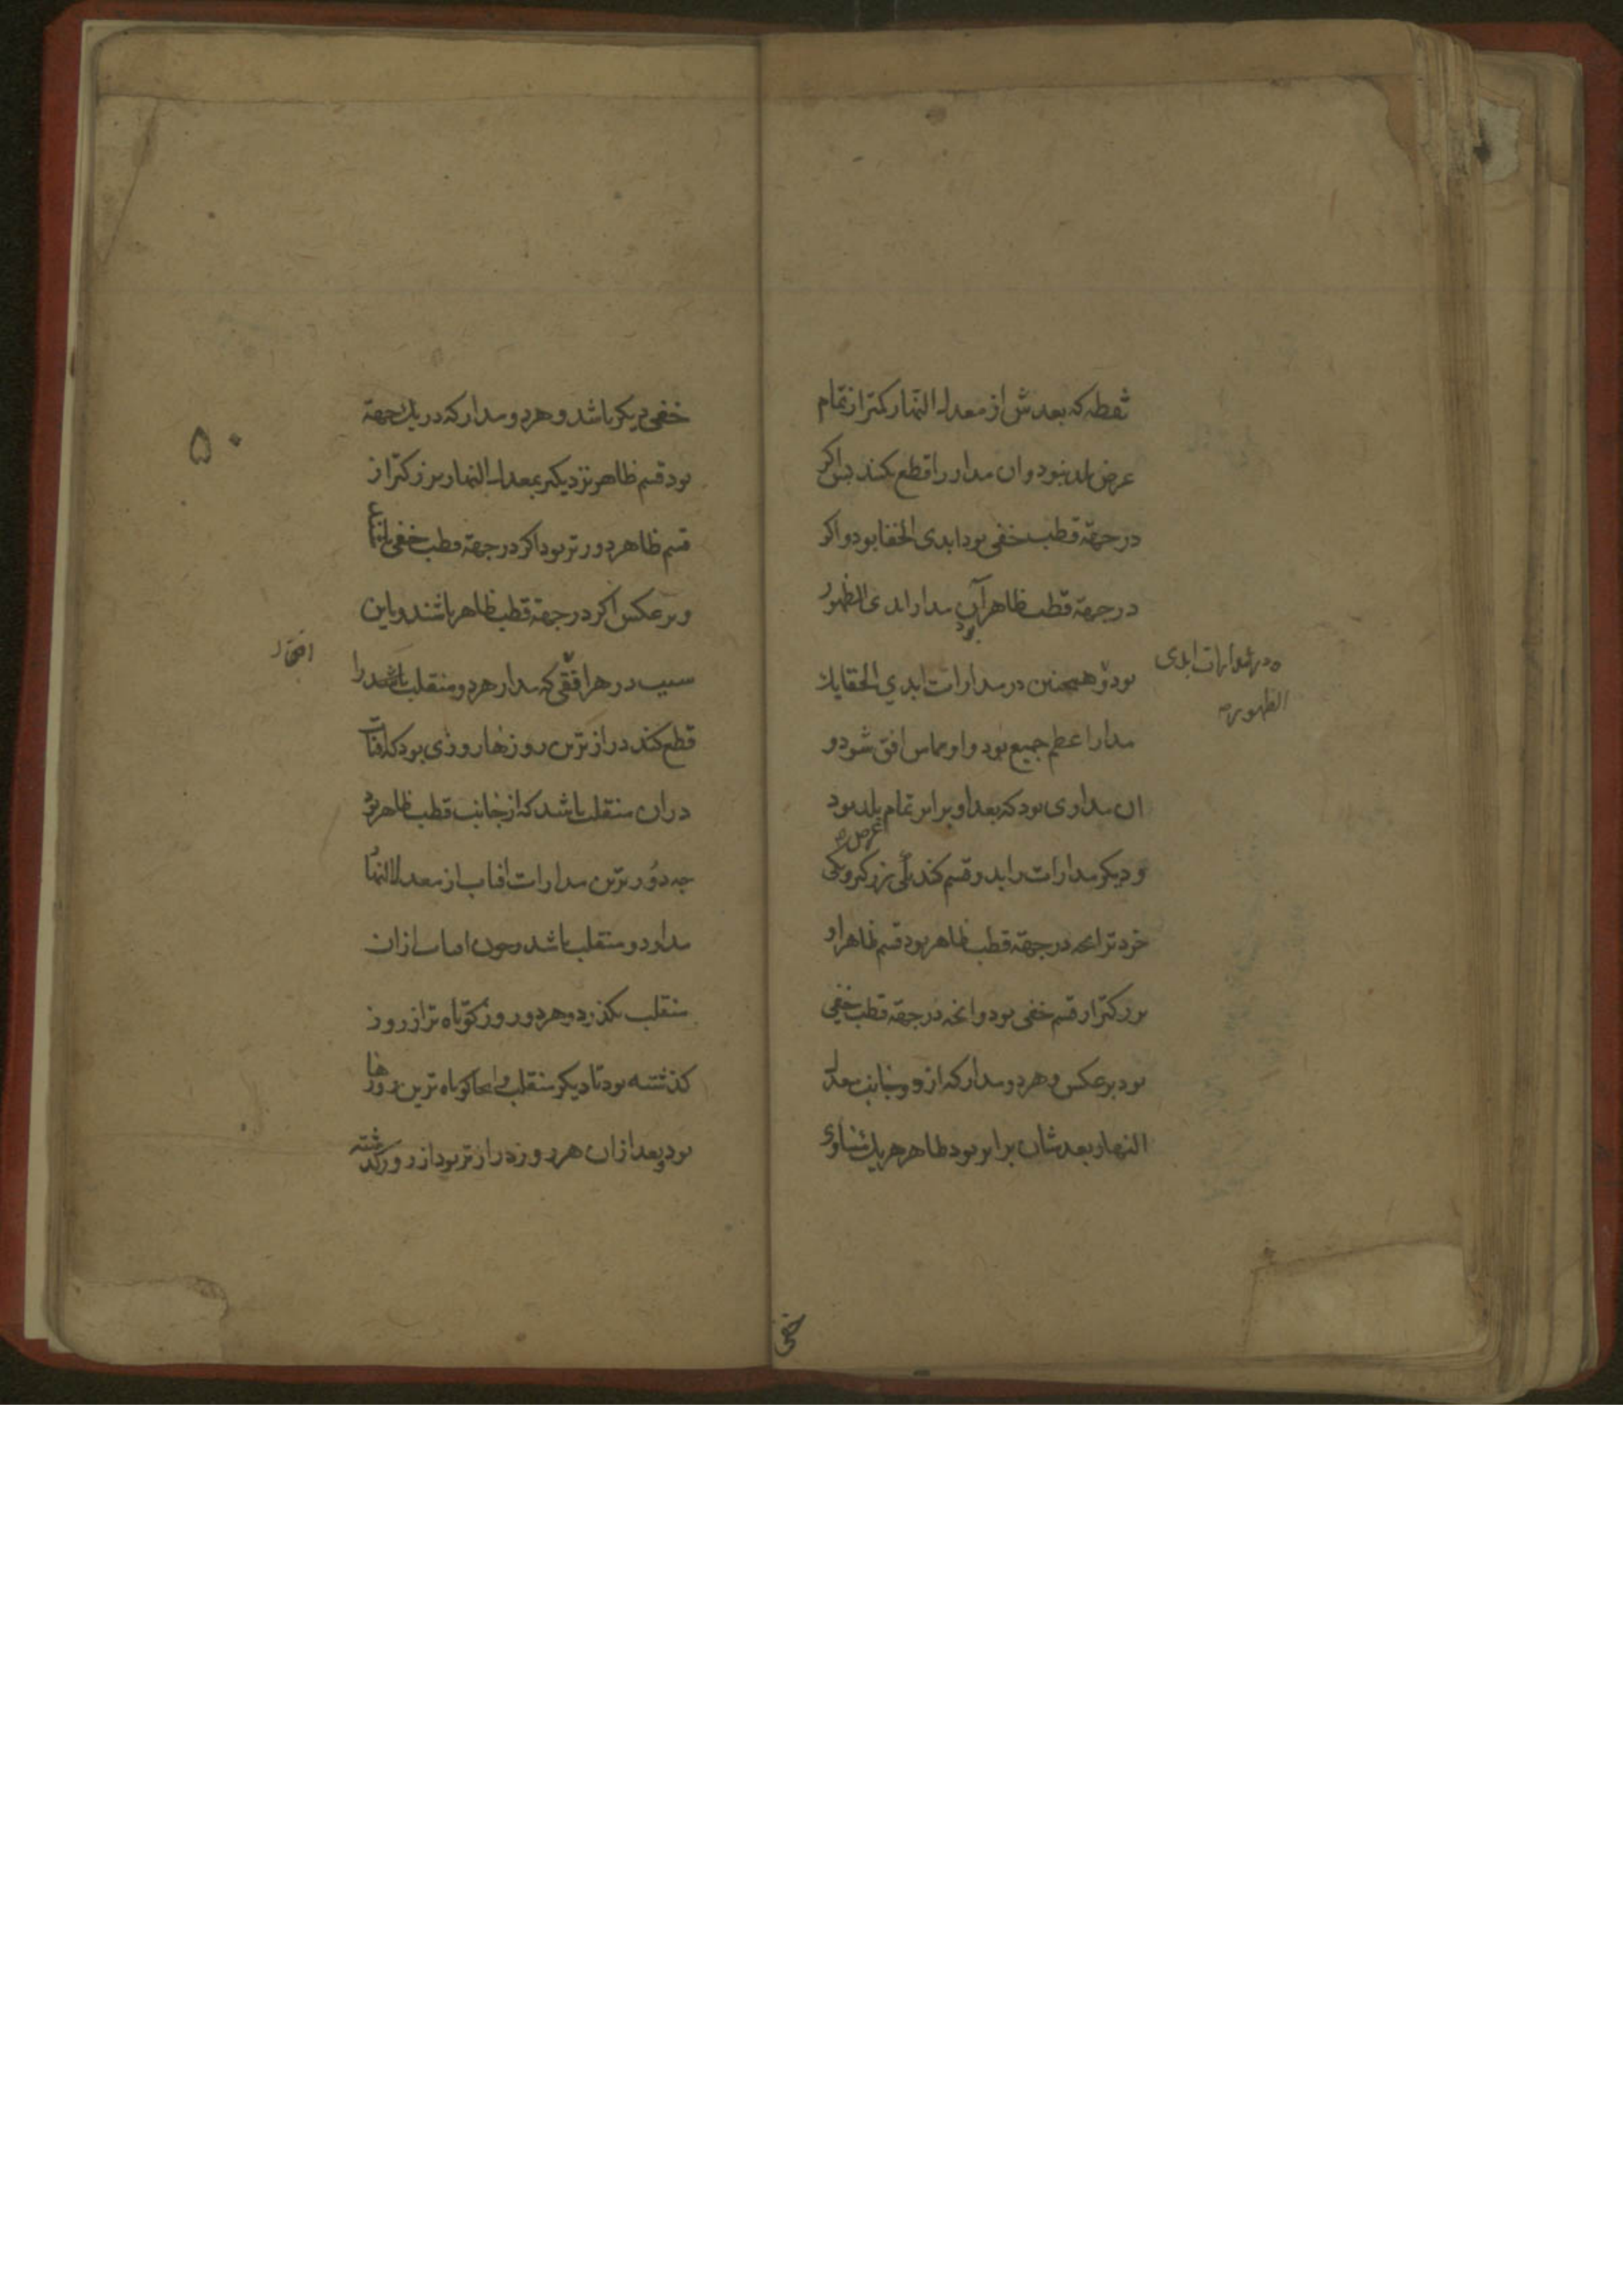 نقطه که بعدش از معدل النهار کمتر از تمام
عرض بلد نبود وان مدار را قطع نکند پس اکر
در جهة قطب خفی بود ابدی الخفا بود و اکر
در جهة قطب ظاهر آن مدار ابدی الظهور
بود
بود و همچنین در مدارات ابدي الخفا یک
در مدارات ابدی
الظهور
مدار اعظم جمیع بود و او مماس افق شود و
ان مداری بود که بعد او برابر تمام بلد بود
عرض
و دیکر مدارات را بدو قسم کند یکی بزرکتر و یکی
خردتر انچه در جهة قطب ظاهر بود قسم ظاهر او
بزرکتر از قسم خفی بود وانچه در جهة قطب خفي
بود برعکس و هر دو مدار که از دو جانب معدل
النهار بعدشان برابر بود ظاهر هر یک مساوی
خفی
۵۰
خفی دیکر باشد و هر دو مدار که در یک جهة
بود قسم ظاهر نزدیکتر بمعدل النهار بزرکتر از
قسم ظاهر دورتر بود اکر در جهة قطب خفی باشد
و برعکس اکر در جهة قطب ظاهر باشند و باین
سبب در هر افقی که مدار هر دو منقلب باشد را
قطع کند درازترین روزها روزی بود که افتاب
دران منقلب باشد که از جانب قطب ظاهر بود
چه دورترین مدارات افتاب از معدل النهار
مدار دو منقلب باشد و چون افتاب ازان
منقلب بکذرد هر روز کوتاه تر از روز
کذشته بود تا دیکر منقلب و انجا کوتاه ترین روزها
بود و بعد ازان هر روز درازتر بود از روز کذشته